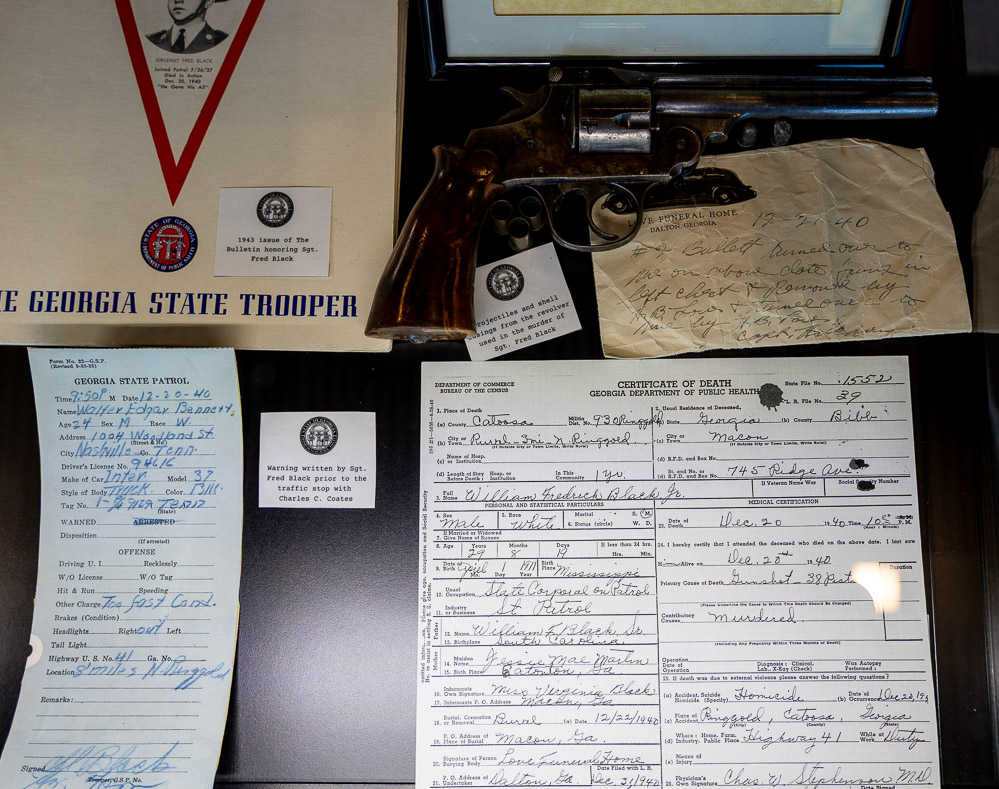 SERGEANT FRED BLACK
Joined Patrol 7/26/37
Died in Action
Dec. 20, 1940
"He Gave His All"
STATE OF GEORGIA
DEPARTMENT OF PUBLIC SAFETY
1943 issue of The
Bulletin honoring Sgt.
Fred Black
E GEORGIA STATE TROOPER
rojectiles and shell
asings from the revolver
used in the murder of
Sgt. Fred Black
LOVE FUNERAL HOME
DALTON, GEORGIA
12-21-40
#2 Bullett turned over to
me on above date, found in
left chest & Removed by
& turned over to
me by
Form No. 22—G.S.P.
GEORGIA STATE PATROL
Time 9:50P M Date 12-20-40
Name Walter Edgar Bennett
Age 24 Sex M Race W
Address 1004 Woodland St
(Street & No)
City Nashville Co. Tenn.
Driver's License No. 94616
Make of Car Inter. Model 37
Style of Body Truck Color Blk.
Tag No. Tenn
(State)
WARNED ARRESTED
Disposition
(If arrested)
OFFENSE
Driving U. I. Recklessly
W/O License W/O Tag
Hit & Run Speeding
Other Charge Too fast Cond.
Brakes (Condition)
Headlights Right out Left
Tail Light
Highway U. S. No. 41 Ga. No.
Location 3 miles N. Ringgold
Remarks:
Signed
Trooper, G.S.P. No.
Warning written by Sgt.
Fred Black prior to the
traffic stop with
Charles C. Coates
DEPARTMENT OF COMMERCE
BUREAU OF THE CENSUS
CERTIFICATE OF DEATH
GEORGIA DEPARTMENT OF PUBLIC HEALTH
State File No. 1552
L. R. File No. 39
1. Place of Death
(a) County Catoosa Militia Dist. No. 930 Ringgold
City or (b) Town Rural-3mi-N. Ringgold
(If Outside City or Town Limits, Write Rural)
Name of Hosp. (c) or Institution
(d) Length of Stay Before Death: Hosp. or Institution In This Community 1 yr.
2. Usual Residence of Deceased,
(a) State Georgia (b) County Bibb
City or (c) Town Macon
(If Outside City or Town Limits, Write Rural)
(d) R.F.D. and Box No.
St. and No. or R.F.D. and Box No. 745 Ridge Ave
If Veteran Name War Social Security Number
3. Full Name William Fredrick Black Jr.
PERSONAL AND STATISTICAL PARTICULARS
4. Sex Male 5. Race White 6. Marital Status (circle) S. M. W. D.
If Married or Widowed
7. Give Name of Spouse
8. Age Years 29 Months 8 Days 19 If less than 24 hrs. Hrs. Min.
9. Date of Birth April 1 1911 Mo. Day Yr. Birth Place Mississippi
10. Usual Occupation State Corporal on Patrol
11. Industry or Business St. Patrol
Father
12. Name William F. Black Sr.
13. Birthplace South Carolina
Mother
14. Maiden Name Jessie Mae Martin
15. Birth Place Eatonton, Ga.
16. Informants Own Signature Miss Virginia Black
17. Informants P. O. Address Macon, Ga
18. Burial, Cremation or Removal Burial (a) Date 12/22/1940
19. P. O. Address Place of Burial Macon, Ga.
20. Signature of Person Burying Body Love Funeral Home
21. P. O. Address Undertaker Dalton, Ga. Date Filed with L.R. Dec. 31, 1940
MEDICAL CERTIFICATION
23. Date of Death Dec. 20 1940 Time 10:00 P. M.
24. I hereby certify that I attended the deceased who died on the above date. I last saw
H Alive on Dec. 20th 1940
Duration
Primary Cause of Death Gunshot 38
(Please Underline the Cause to Which This Death Should Be Charged)
Contributory Causes Murdered
(Including Any Pregnancy Within Three Months of Death)
Operation
Date of Operation
Diagnosis: Clinical. Lab. X-Ray (Check)
Was Autopsy Performed:
25. If death was due to external violence please answer the following questions?
(a) Accident, Suicide Homicide (Specify) Homicide (b) Date of Occurrence Dec 20, 19
(c) Place of Accident Ringgold, Catoosa, Georgia
(State)
(d) Where: Home, Farm, Industry, Public Place Highway 41 While at Work Duty
(e) Means of Injury
26. Physician's Own Signature Chas. W. Stephenson MD
Date Signed